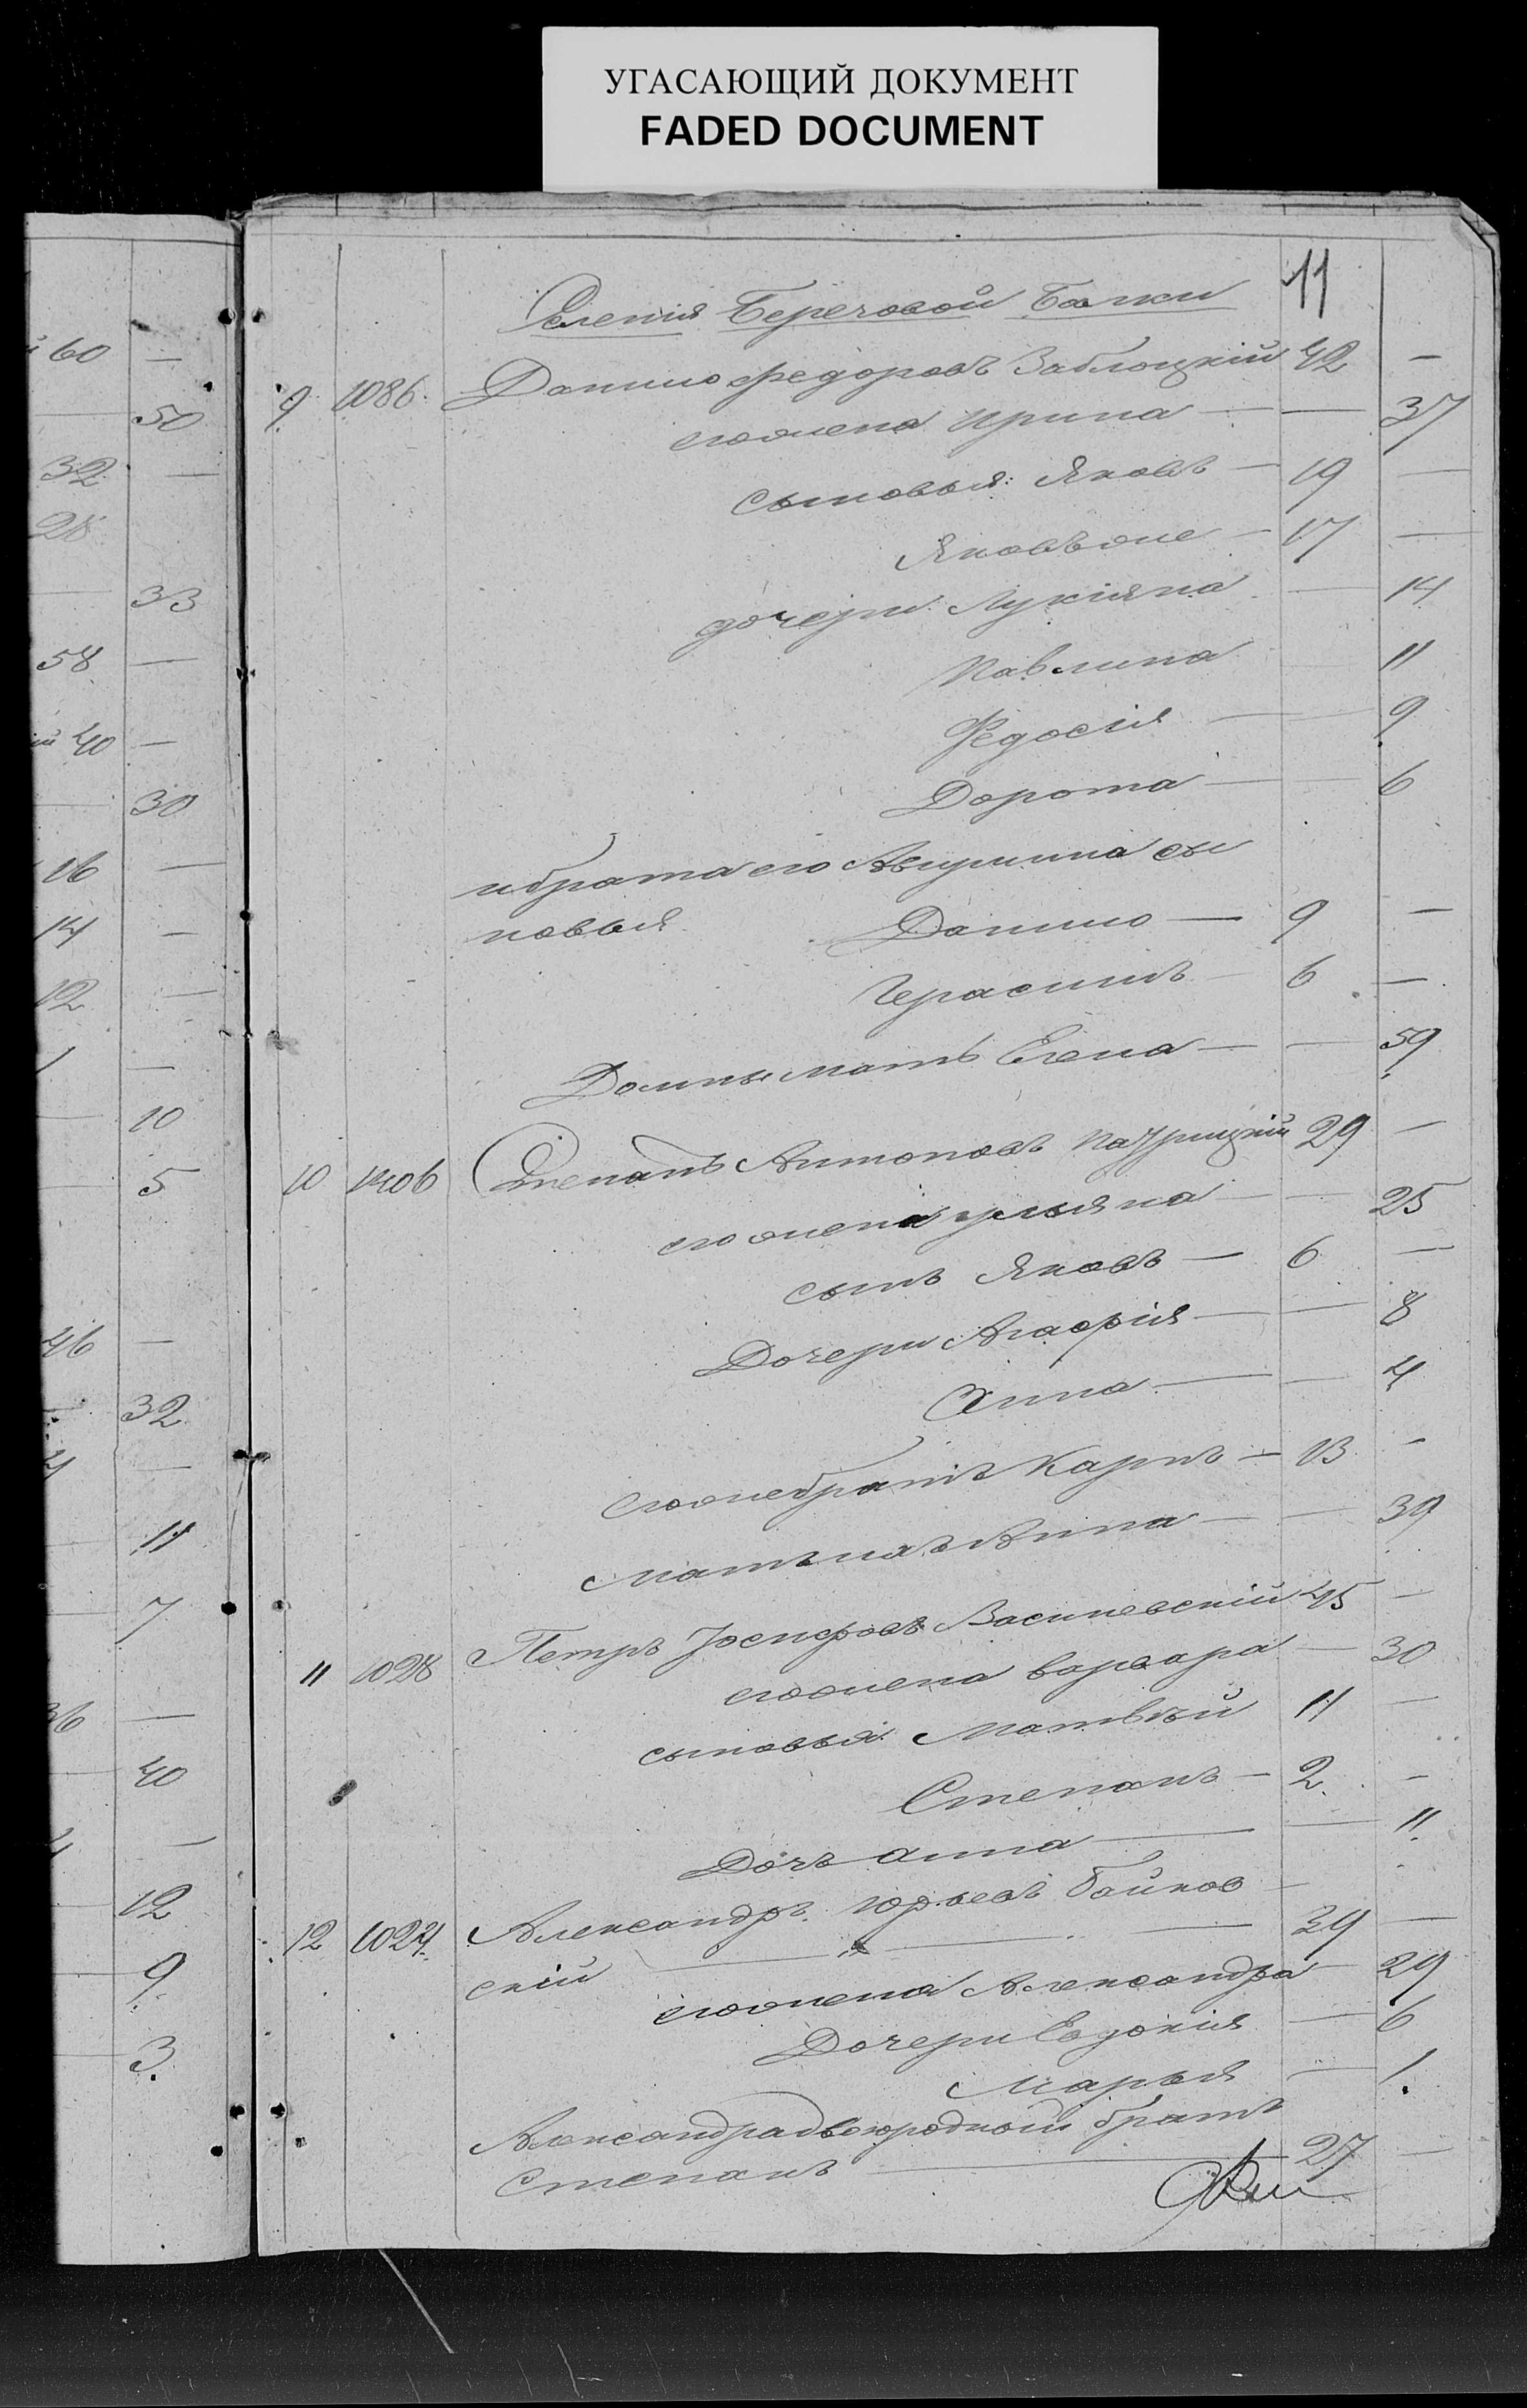 УГАСАЮЩИЙ ДОКУМЕНТ
FADED DOCUMENT
11
Селенія Беречовой Балки
9 1086 Данило Федоровъ Заблоцкій 42 —
его жена Ирина — — 37
сыновья: Яковъ — 19 —
Яковъ же — 17 —
дочери: Лукіяна — 14
Павлина 11
Федосія — 9
Дорота — 6
и брата его сы
новья Данило — 9 —
Герасимъ — 6 —
мать Елена — — 59
10 1406 Степанъ Антоновъ 29 —
его жена Ульяна — — 25
сынъ Яковъ — 6 —
Дочери Агафія — — 8
Анна — — 4
его же братъ Карпъ — 13 —
мать ихъ Анна — — 39
11 1028 Петръ Іосифовъ Василевскій 45 —
его жена Варвара — 30
сыновья Матвѣй 11 —
Степанъ — 2 —
Дочь Анна — — 11
12 1024 Александръ Юрьевъ Байков
скій — 39 —
его жена Александра — 29
Дочери Евдокія — 6
Марья — 1
Александра двоюродный братъ
Степанъ — 27 —
60 —
50
32 —
28
33
58 —
40 —
30
16 —
14 —
12 —
1 —
10
5
46 —
32
11
7
36 —
40
12
9
3